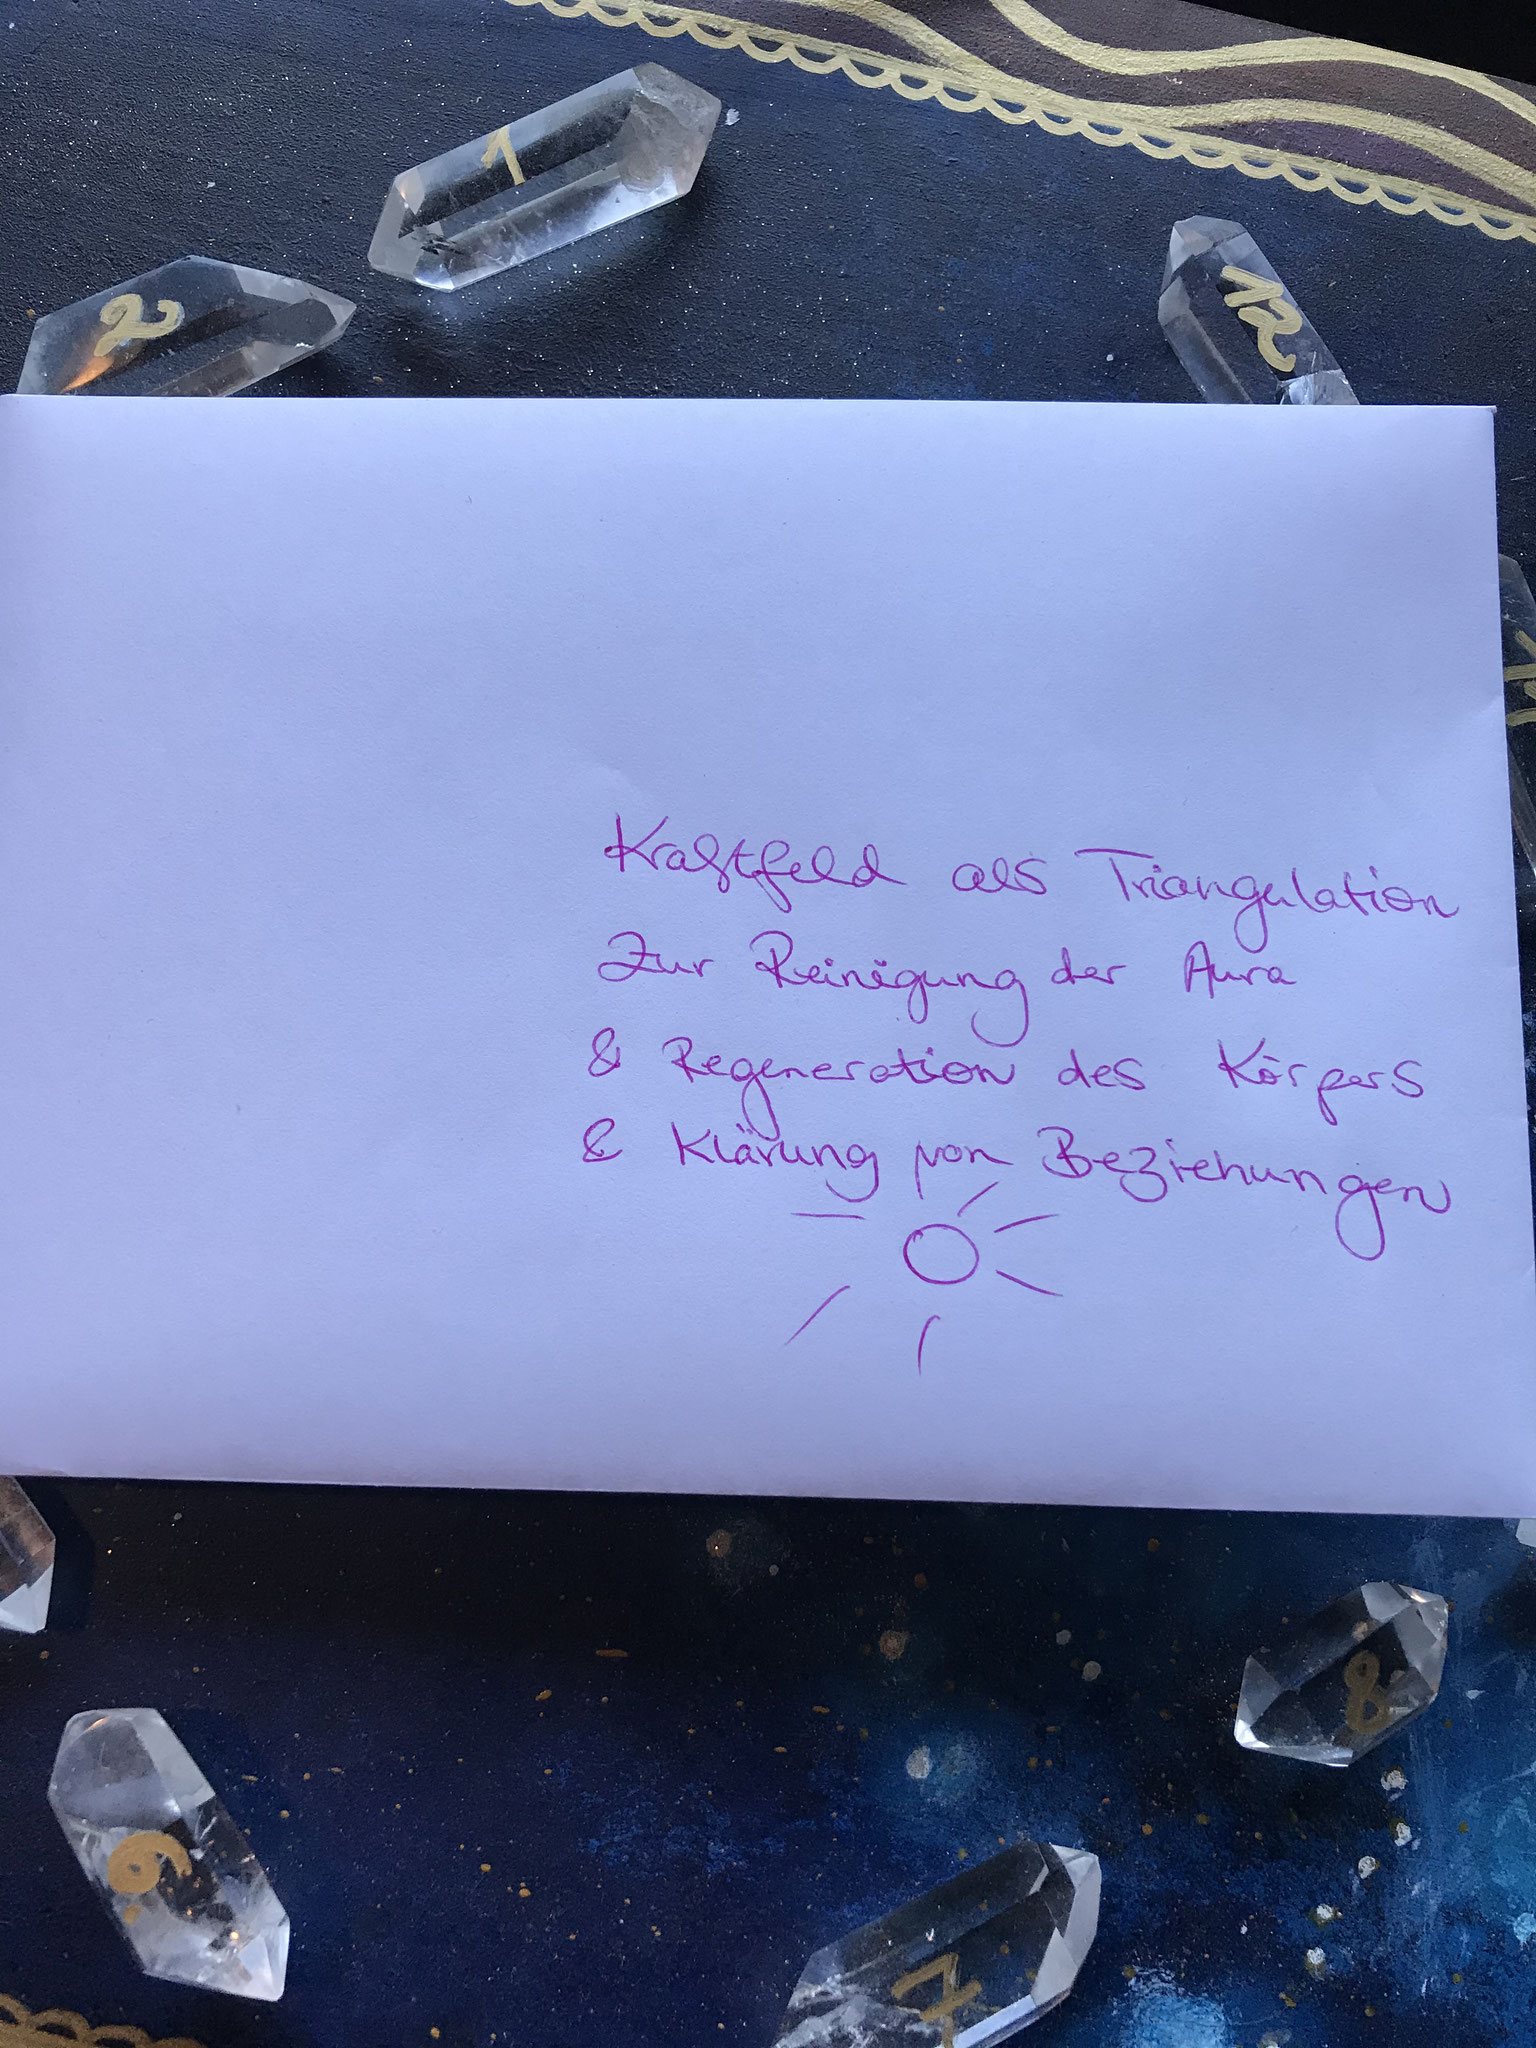 1
2
12
Kraftfeld als Triangulation
Zur Reinigung der Aura
& Regeneration des Körpers
& Klärung von Beziehungen
8
6
7